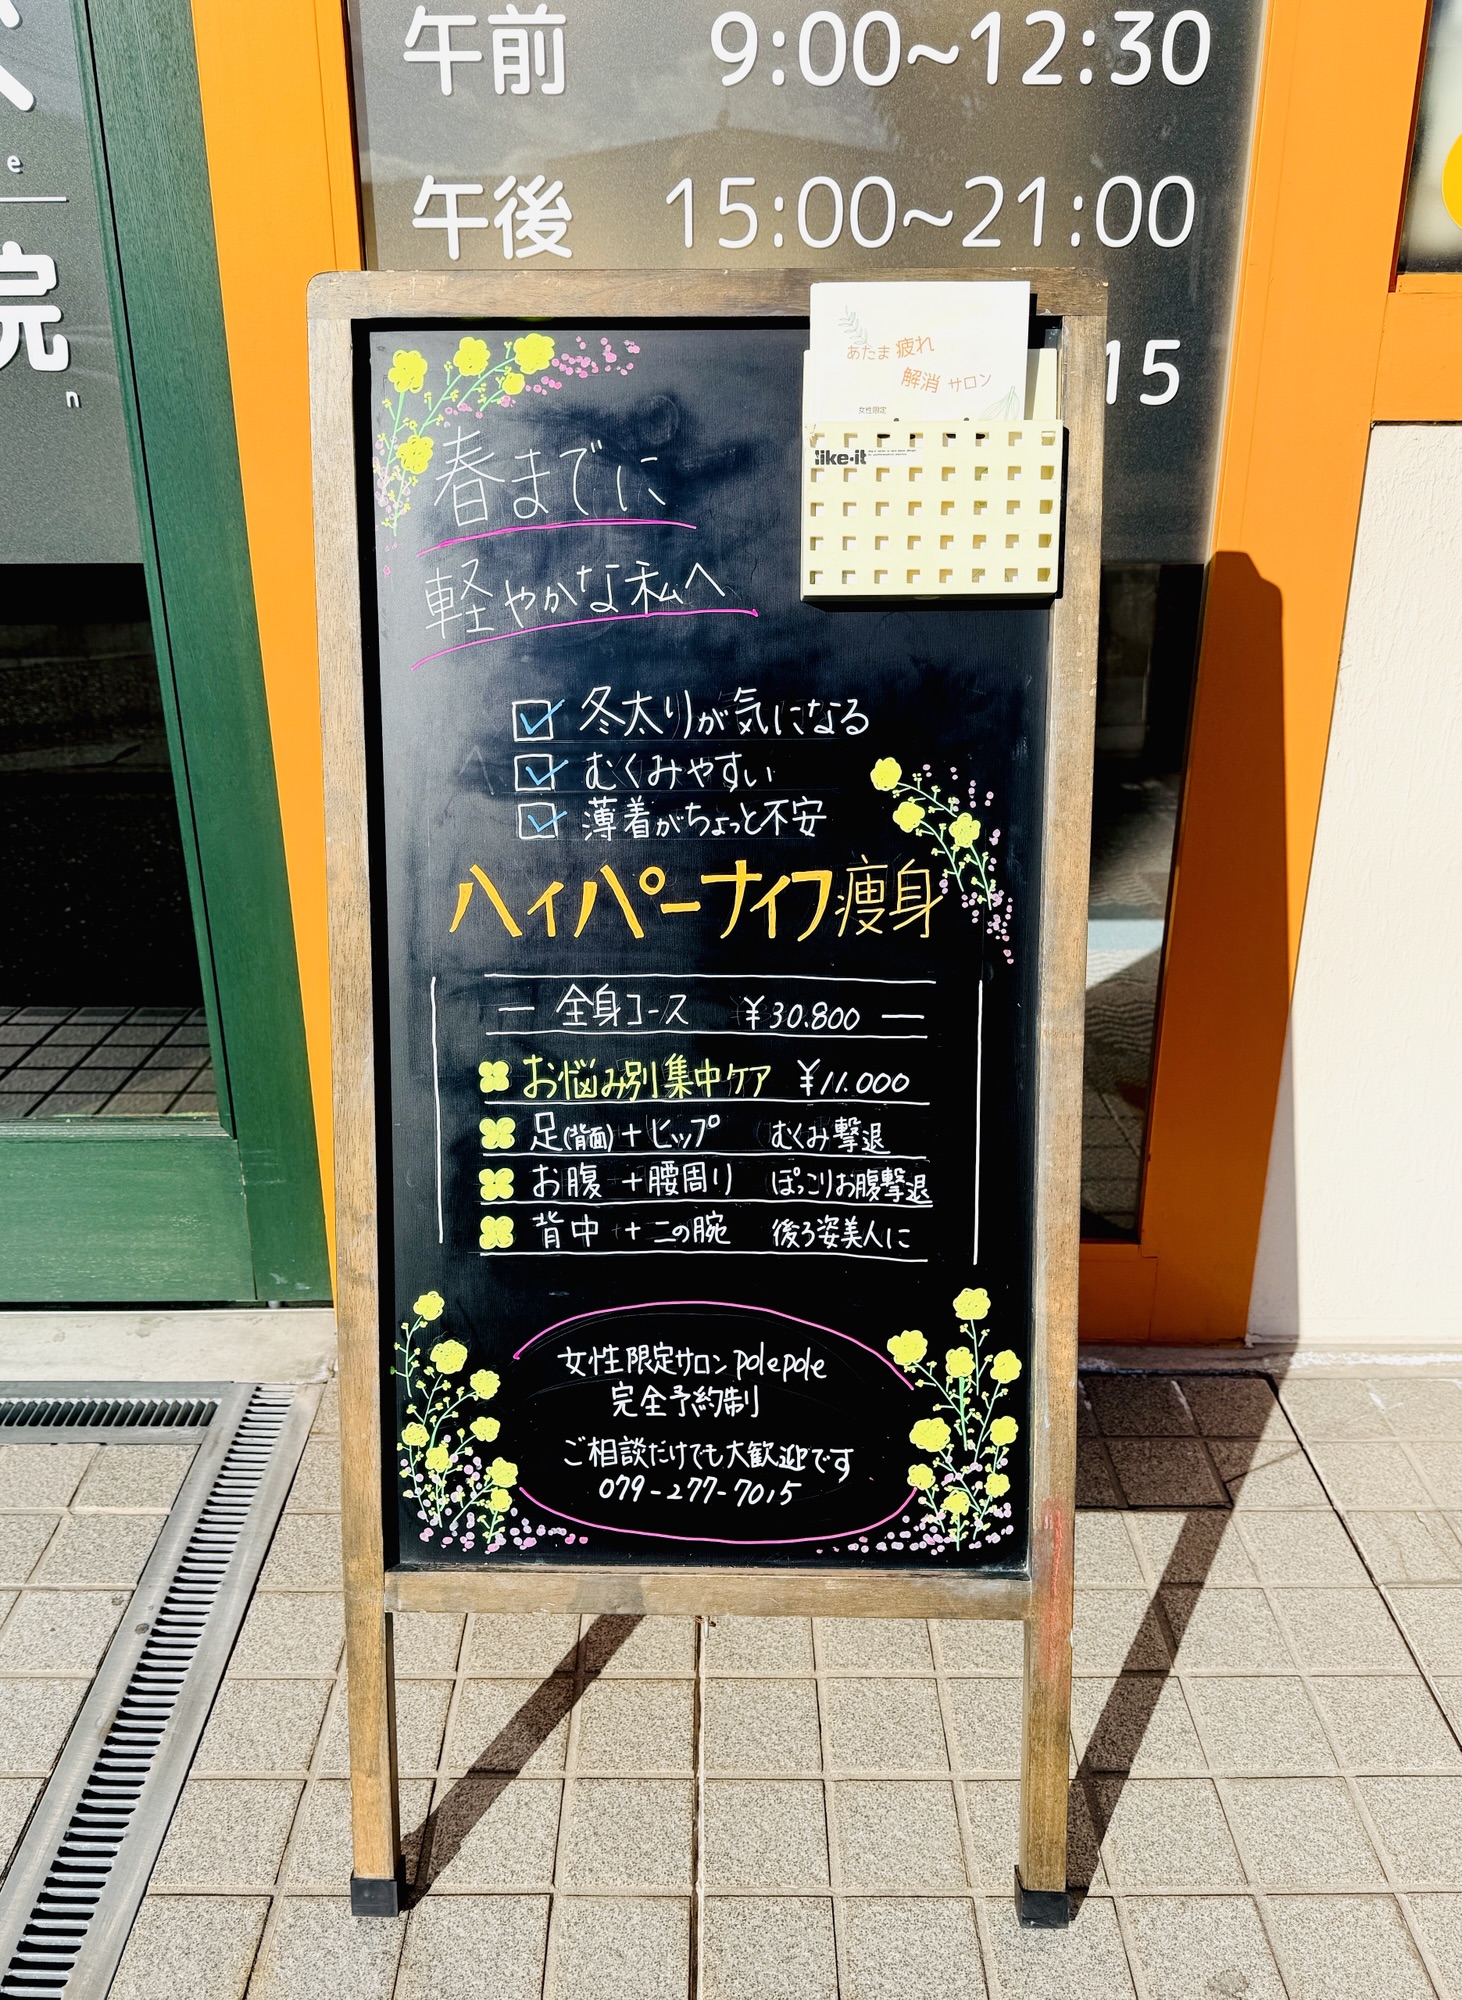 午前 9:00~12:30
午後 15:00~21:00
15
e
院
n
あたま疲れ
解消サロン
女性限定
like-it
春までに
軽やかな私へ
冬太りが気になる
むくみやすい
薄着がちょっと不安
ハイパーナイフ痩身
— 全身コース ¥30.800 —
お悩み別集中ケア ¥11.000
足(背面)+ヒップ むくみ撃退
お腹+腰周り ぽっこりお腹撃退
背中+二の腕 後ろ姿美人に
女性限定サロンpolepole
完全予約制
ご相談だけでも大歓迎です
079-277-7015